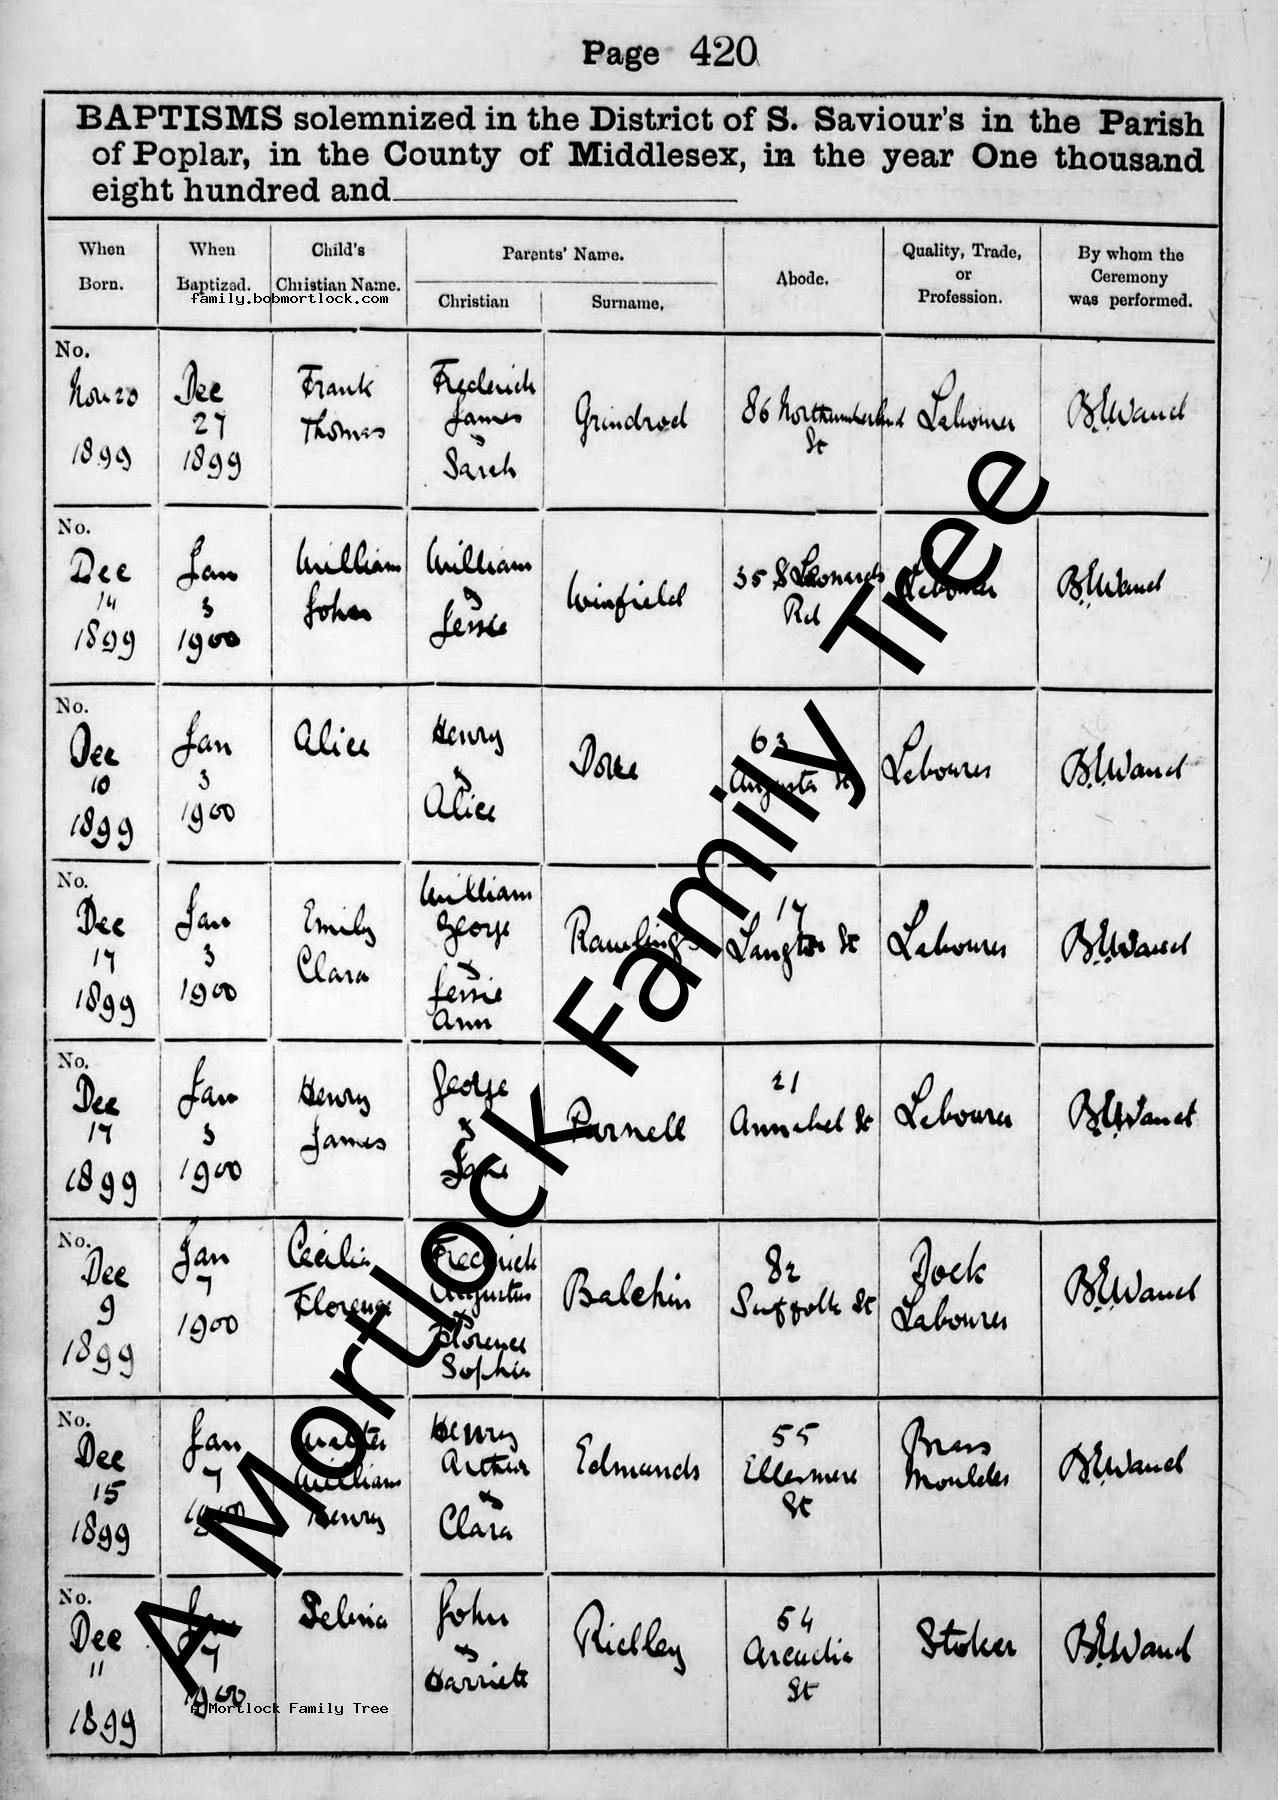 Page 420
BAPTISMS solemnized in the District of S. Saviour's in the Parish
of Poplar, in the County of Middlesex, in the year One thousand
eight hundred and
When Born.
When Baptized.
Child's Christian Name.
Parents' Name.
Christian
Surname.
Abode.
Quality, Trade, or Profession.
By whom the Ceremony was performed.
family.bobmortlock.com
No.
Nov 20
1899
Dec
27
1899
Frank
Thomas
Frederick
James
&
Sarah
Grindrod
86 Northumberland
St
Labourer
B.E.Wand
No.
Dec
14
1899
Jan
3
1900
William
John
William
&
Jessie
Winfield
35 S Leonards
Rd
Labourer
B.E.Wand
No.
Dec
10
1899
Jan
3
1900
Alice
Henry
&
Alice
63
Augusta St
Labourer
B.E.Wand
No.
Dec
17
1899
Jan
3
1900
Emily
Clara
William
George
&
Jessie
Ann
Rawlings
17
Langton St
Labourer
B.E.Wand
No.
Dec
17
1899
Jan
3
1900
Henry
James
George
&
Jane
Parnell
21
Annabel St
Labourer
B.E.Wand
No.
Dec
9
1899
Jan
7
1900
Cecilia
Florence
Frederick
Augustus
&
Florence
Sophia
Balchin
82
Suffolk St
Dock
Labourer
B.E.Wand
No.
Dec
15
1899
Jan
7
1900
Walter
William
Henry
Henry
Arthur
&
Clara
Edmunds
55
Ellesmere
St
Brass
Moulder
B.E.Wand
No.
Dec
11
1899
Jan
7
1900
Selina
John
&
Harriett
Ridley
54
Arcadia
St
Stoker
B.E.Wand
A Mortlock Family Tree
A Mortlock Family Tree